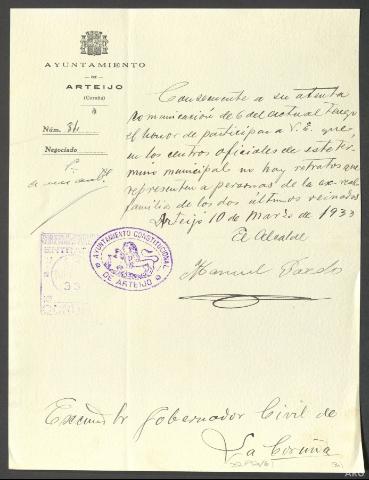 AYUNTAMIENTO
DE
ARTEIJO
(Coruña)
Núm. 84
Negociado
Consecuente a su atenta
comunicación de 6 del actual tengo
el honor de participar a V.E. que,
en los centros oficiales de este tér-
mino municipal no hay retratos que
representen a personas de la ex-real
familia de los dos últimos reinados
Arteijo 10 de Marzo de 1933
El Alcalde
Manuel Pardo
AYUNTAMIENTO CONSTITUCIONAL
DE ARTEIJO
ENTRA
33
Excmo Sr Gobernador Civil de
La Coruña